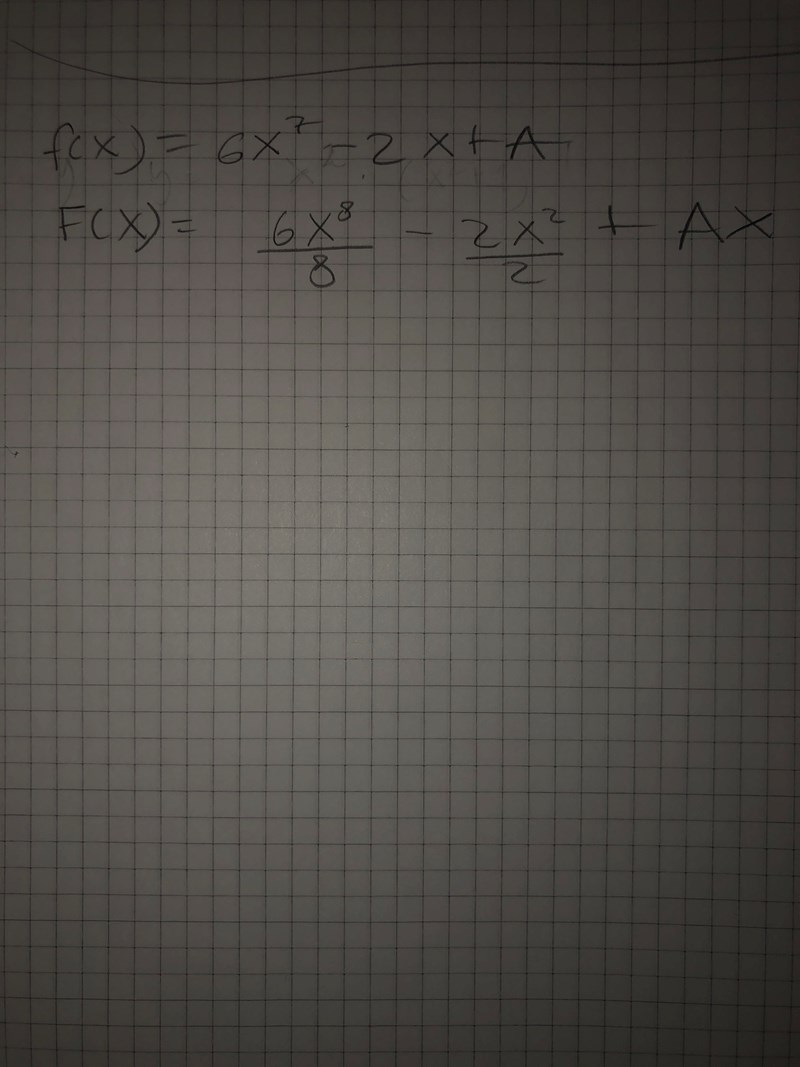 f(x) = 6x⁷ - 2x + A
F(X) = 6x⁸/8 - 2x²/2 + AX